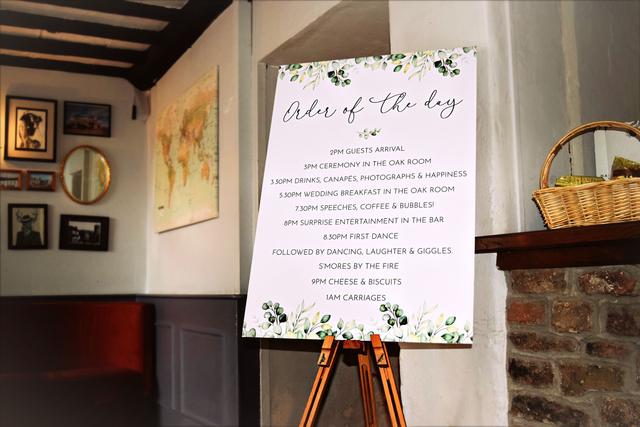 Order of the day
2PM GUESTS ARRIVAL
3PM CEREMONY IN THE OAK ROOM
3.30PM DRINKS, CANAPES, PHOTOGRAPHS & HAPPINESS
5.30PM WEDDING BREAKFAST IN THE OAK ROOM
7.30PM SPEECHES, COFFEE & BUBBLES!
8PM SURPRISE ENTERTAINMENT IN THE BAR
8.30PM FIRST DANCE
FOLLOWED BY DANCING, LAUGHTER & GIGGLES.
S'MORES BY THE FIRE
9PM CHEESE & BISCUITS
1AM CARRIAGES